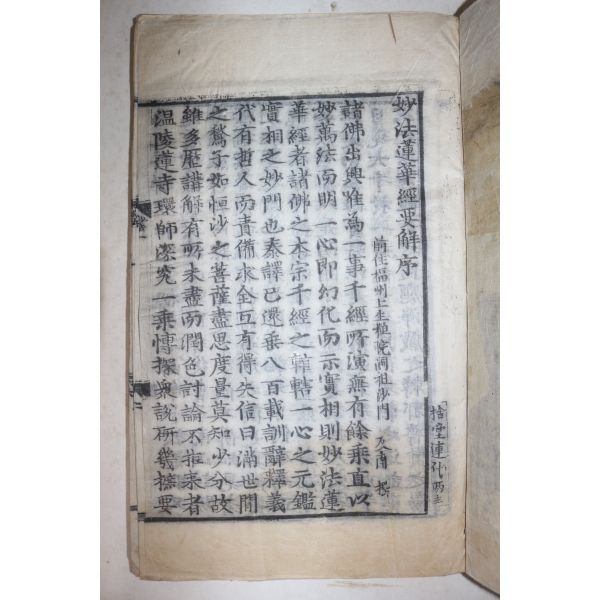 妙法蓮華經要解序
前住福州上生禪院嗣祖沙門 及南 撰
諸佛出興唯為一事千經所演無有餘乘直以
妙萬法而明一心即幻化而示實相則妙法蓮
華經者諸佛之本宗千經之轄一心之元鑑
實相之妙門也秦譯已還垂八百載訓辭釋義
代有哲人而責備求全互有得失信日滿世間
之鶖子如恒沙之菩薩盡思度量莫知少分故
雖多歷講解有所未盡而潤色討論不推來者
温陵蓮寺環師深究一乘愽探衆說研幾摭要
捨堂連代兩主